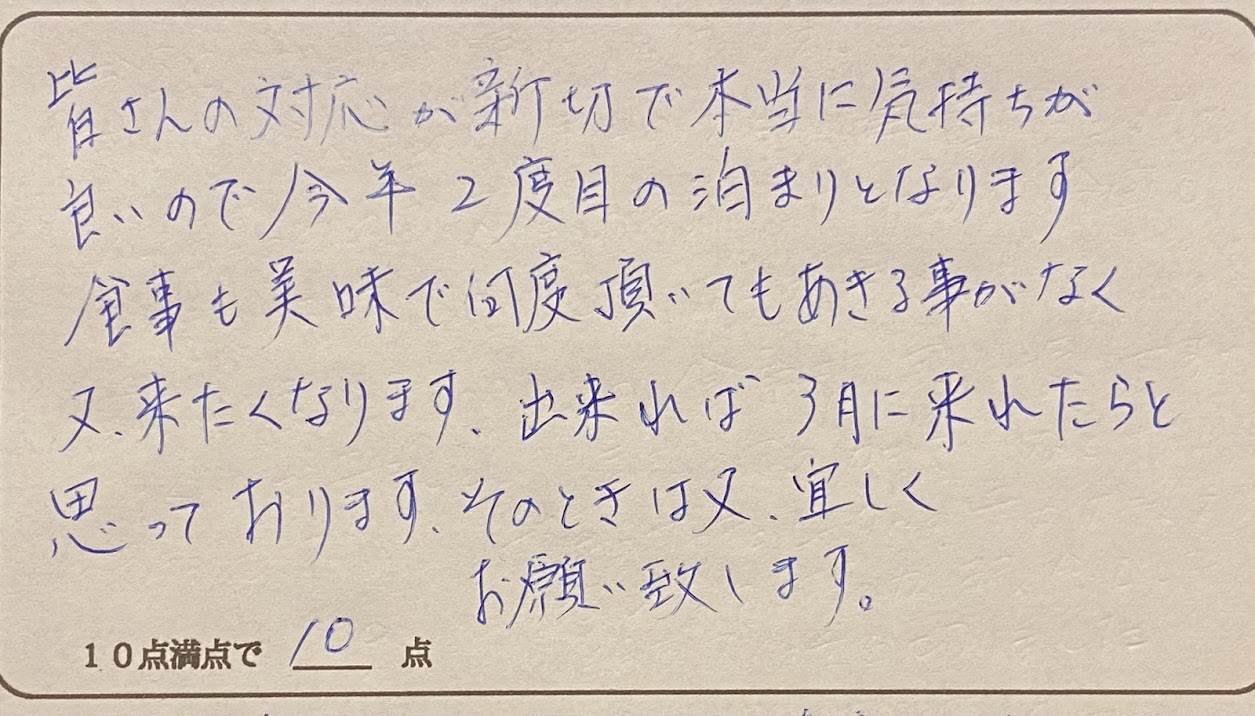 皆さんの対応が新切で本当に気持ちが
良いので今年2度目の泊まりとなります
食事も美味で何度頂いてもあきる事がなく
又、来たくなります、出来れば3月に来れたらと
思っております、そのときは又、宜しく
お願い致します。
10点満点で 10 点